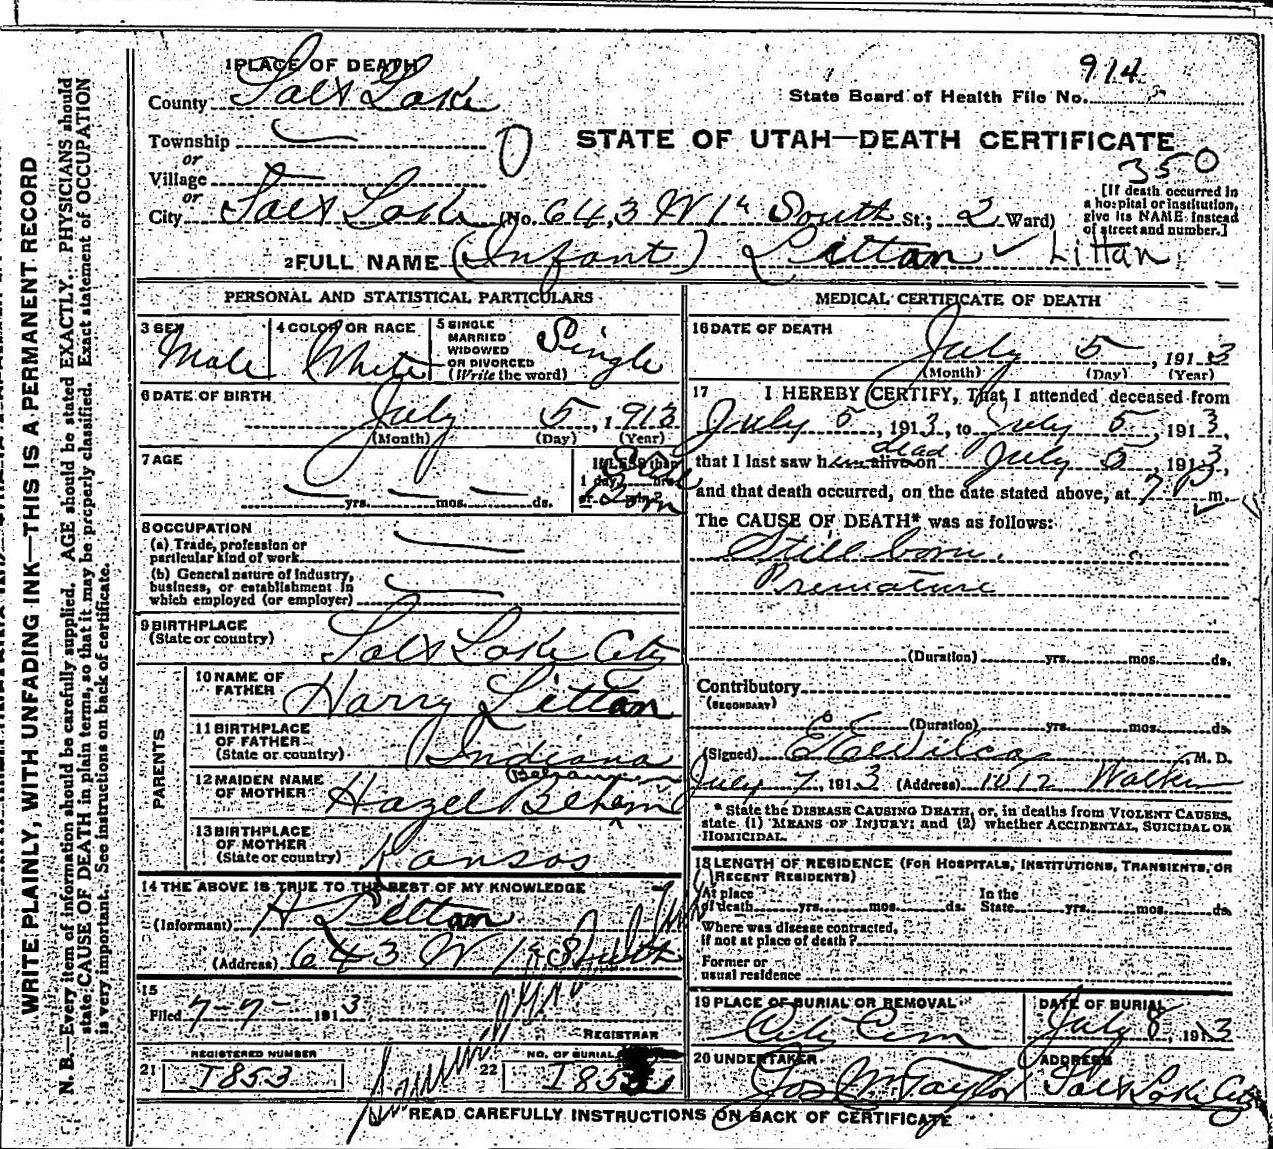 WRITE PLAINLY, WITH UNFADING INK—THIS IS A PERMANENT RECORD
N. B.—Every item of information should be carefully supplied. AGE should be stated EXACTLY. PHYSICIANS should
state CAUSE OF DEATH in plain terms, so that it may be properly classified. Exact statement of OCCUPATION
is very important. See instructions on back of certificate.
1 PLACE OF DEATH
County Salt Lake
Township
or
Village
or
City Salt Lake (No. 643 W 1st South St.; 2 Ward)
914
State Board of Health File No.
STATE OF UTAH—DEATH CERTIFICATE
350
[If death occurred in
a hospital or institution,
give its NAME instead
of street and number.]
2 FULL NAME (Infant) Littan ✓ Littan
PERSONAL AND STATISTICAL PARTICULARS
3 SEX Male
4 COLOR OR RACE White
5 SINGLE
MARRIED
WIDOWED
OR DIVORCED
(Write the word) Single
6 DATE OF BIRTH
July 5, 1913
(Month) (Day) (Year)
7 AGE
yrs. mos. ds.
If LESS than
1 day, hrs.
or min.?
Still Born
8 OCCUPATION
(a) Trade, profession or
particular kind of work
(b) General nature of industry,
business, or establishment in
which employed (or employer)
9 BIRTHPLACE
(State or country) Salt Lake City
PARENTS
10 NAME OF
FATHER Harry Littan
11 BIRTHPLACE
OF FATHER
(State or country) Indiana
12 MAIDEN NAME
OF MOTHER Hazel
13 BIRTHPLACE
OF MOTHER
(State or country) Kansas
14 THE ABOVE IS TRUE TO THE BEST OF MY KNOWLEDGE
(Informant) H Littan
(Address) 643 W 1st South
15
Filed 7-7- 1913
REGISTRAR
REGISTERED NUMBER
21 I853
NO. OF BURIAL
22
MEDICAL CERTIFICATE OF DEATH
16 DATE OF DEATH
July 5, 1913
(Month) (Day) (Year)
17 I HEREBY CERTIFY, That I attended deceased from
July 5, 1913, to July 5, 1913,
that I last saw him alive on dead July 5, 1913,
and that death occurred, on the date stated above, at 7 P m.
The CAUSE OF DEATH* was as follows:
Still born.
Premature
(Duration) yrs. mos. ds.
Contributory
(SECONDARY)
(Duration) yrs. mos. ds.
(Signed) E E Wilcox, M. D.
July 7, 1913 (Address) 1012 Walker
* State the DISEASE CAUSING DEATH, or, in deaths from VIOLENT CAUSES,
state (1) MEANS OF INJURY; and (2) whether ACCIDENTAL, SUICIDAL OR
HOMICIDAL.
18 LENGTH OF RESIDENCE (FOR HOSPITALS, INSTITUTIONS, TRANSIENTS, OR
RECENT RESIDENTS)
At place
of death yrs. mos. ds.
In the
State yrs. mos. ds.
Where was disease contracted,
if not at place of death?
Former or
usual residence
19 PLACE OF BURIAL OR REMOVAL
City Cem
DATE OF BURIAL
July 8, 1913
20 UNDERTAKER
Jos Wm Taylor
ADDRESS
Salt Lake City
READ CAREFULLY INSTRUCTIONS ON BACK OF CERTIFICATE